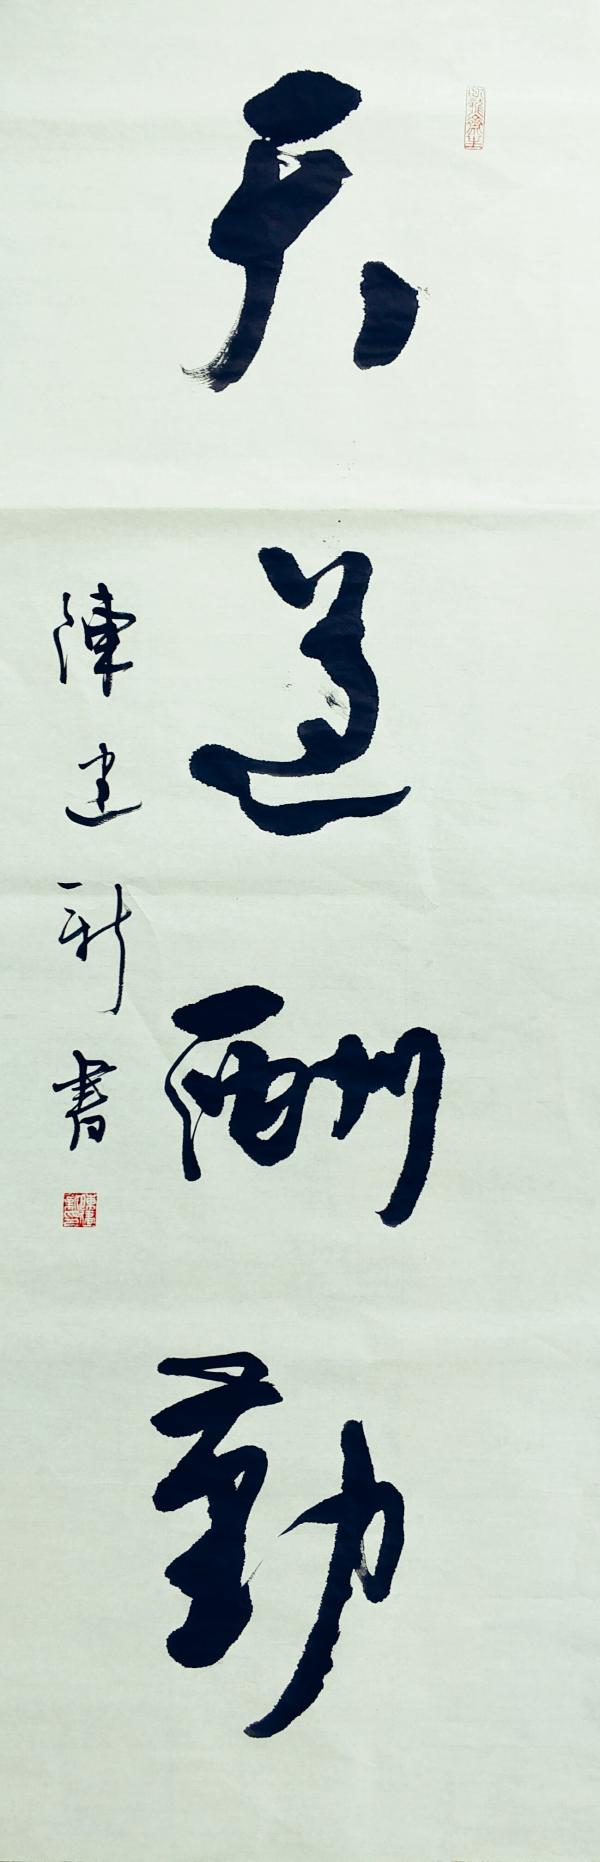 天道酬勤
陳建新書